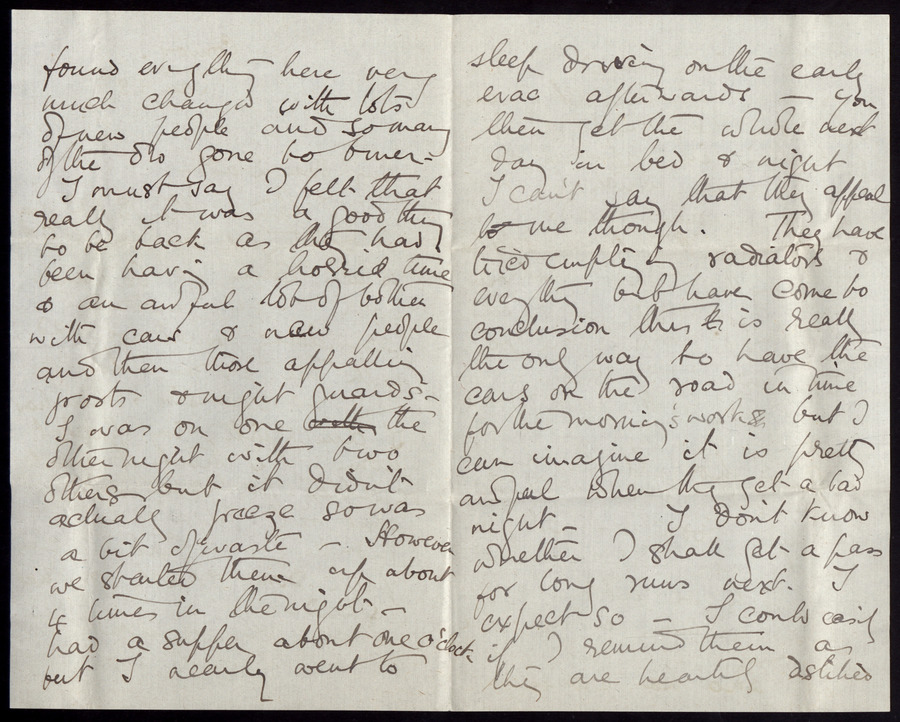 found everything here very
much changed with lots
of new people and so many
of the old gone to
I must say I felt that
really it was a good thing
to be back as they had
been having a horrid time
& an awful lot of bother
with cars & new people
and then those appalling
frosts & night guards -
I was on one with the
other night with two
others but it didn't
actually freeze so was
a bit of waste - However
we started them up about
4 times in the night -
had a supper about one o'clock
but I nearly went to
sleep driving on the early
evac afterwards - You
then get the whole next
day in bed & night
I can't say that they appeal
to me though. They have
tried emptying radiators &
everything but have come to
conclusion this is really
the only way to have the
cars on the road in time
for the morning's works but I
can imagine it is pretty
awful when they get a bad
night - I don't know
whether I shall get a pass
for long runs next. I
expect so - I could easily
if I remind them as
they are heartily